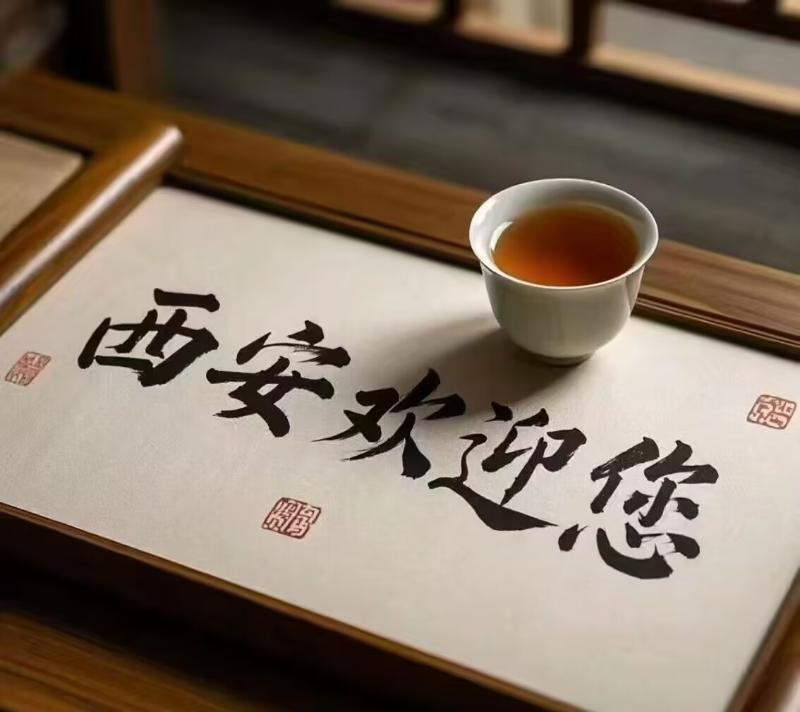 西安欢迎您